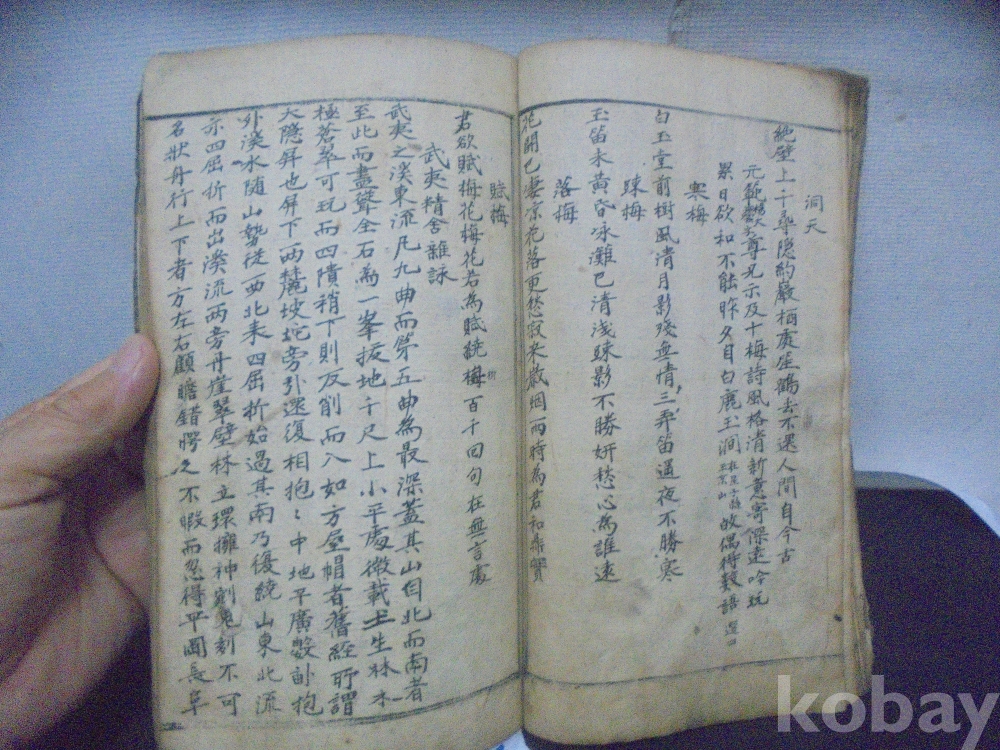 洞天
絶壁上千尋隠約巖栖處笙鶴去不還人間自今古
元範尊兄示及十梅詩風格清新意寄深遠吟玩
累日欲和不能昨夕自白鹿玉澗
故偶得數語
寒梅
白玉堂前樹風清月影殘無情三弄笛遥夜不勝寒
疎梅
玉笛未黄昏冰灘已清淺疎影不勝妍愁心為誰遠
落梅
花開已凄凉花落更愁寂米嚴烟雨時為君和鼎實
賦梅
君欲賦梅花梅花若為賦繞樹百千回句在無言處
武夷精舍雜詠
武夷之溪東流凡九曲而第五曲為最深蓋其山自北而南者
至此而盡聳全石為一峯拔地千尺上小平處微載土生林木
極蒼翠可玩而四隤稍下則反削而入如方屋帽者舊經所謂
大隠屏也屏下两麓坡坨旁引還復相抱〻中地平廣數畝抱
外溪水随山勢從西北来四屈折始過其南乃復繞山東北流
亦四屈折而出溪流两旁丹崖翠壁林立環擁神剜鬼刻不可
名狀舟行上下者方左右顧瞻錯愕之不暇而忽得平岡長阜
kobay